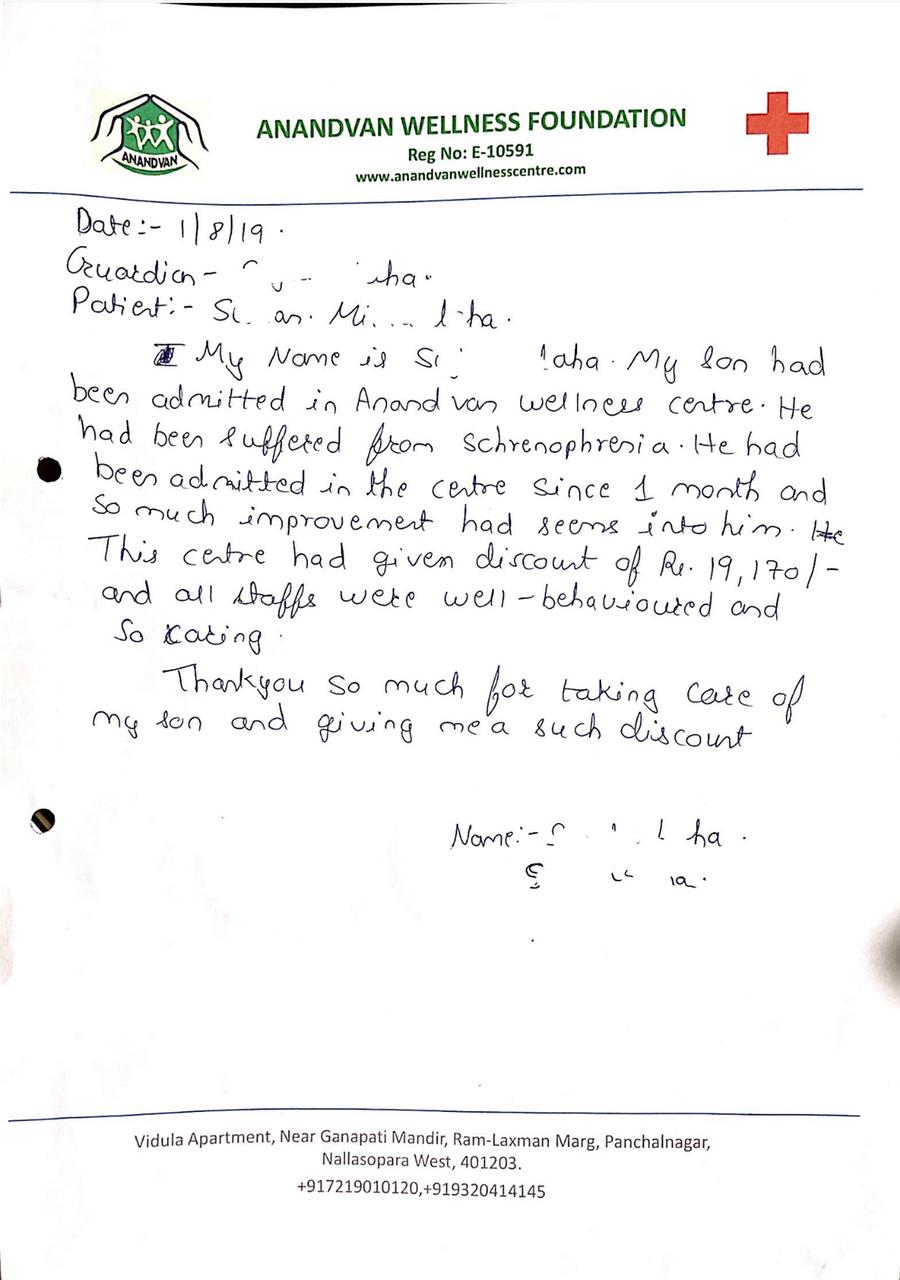 ANANDVAN
ANANDVAN WELLNESS FOUNDATION
Reg No: E-10591
www.anandvanwellnesscentre.com
Date:- 1/8/19.
Guardian -
Patient:-
My Name is My son had
been admitted in Anandvan wellness centre. He
had been suffered from schrenophresia. He had
been admitted in the centre since 1 month and
so much improvement had seems into him. He
This centre had given discount of Rs. 19,170/-
and all staffs were well-behavioured and
so caring.
Thankyou so much for taking care of
my son and giving me a such discount
Name:-
Vidula Apartment, Near Ganapati Mandir, Ram-Laxman Marg, Panchalnagar,
Nallasopara West, 401203.
+917219010120,+919320414145